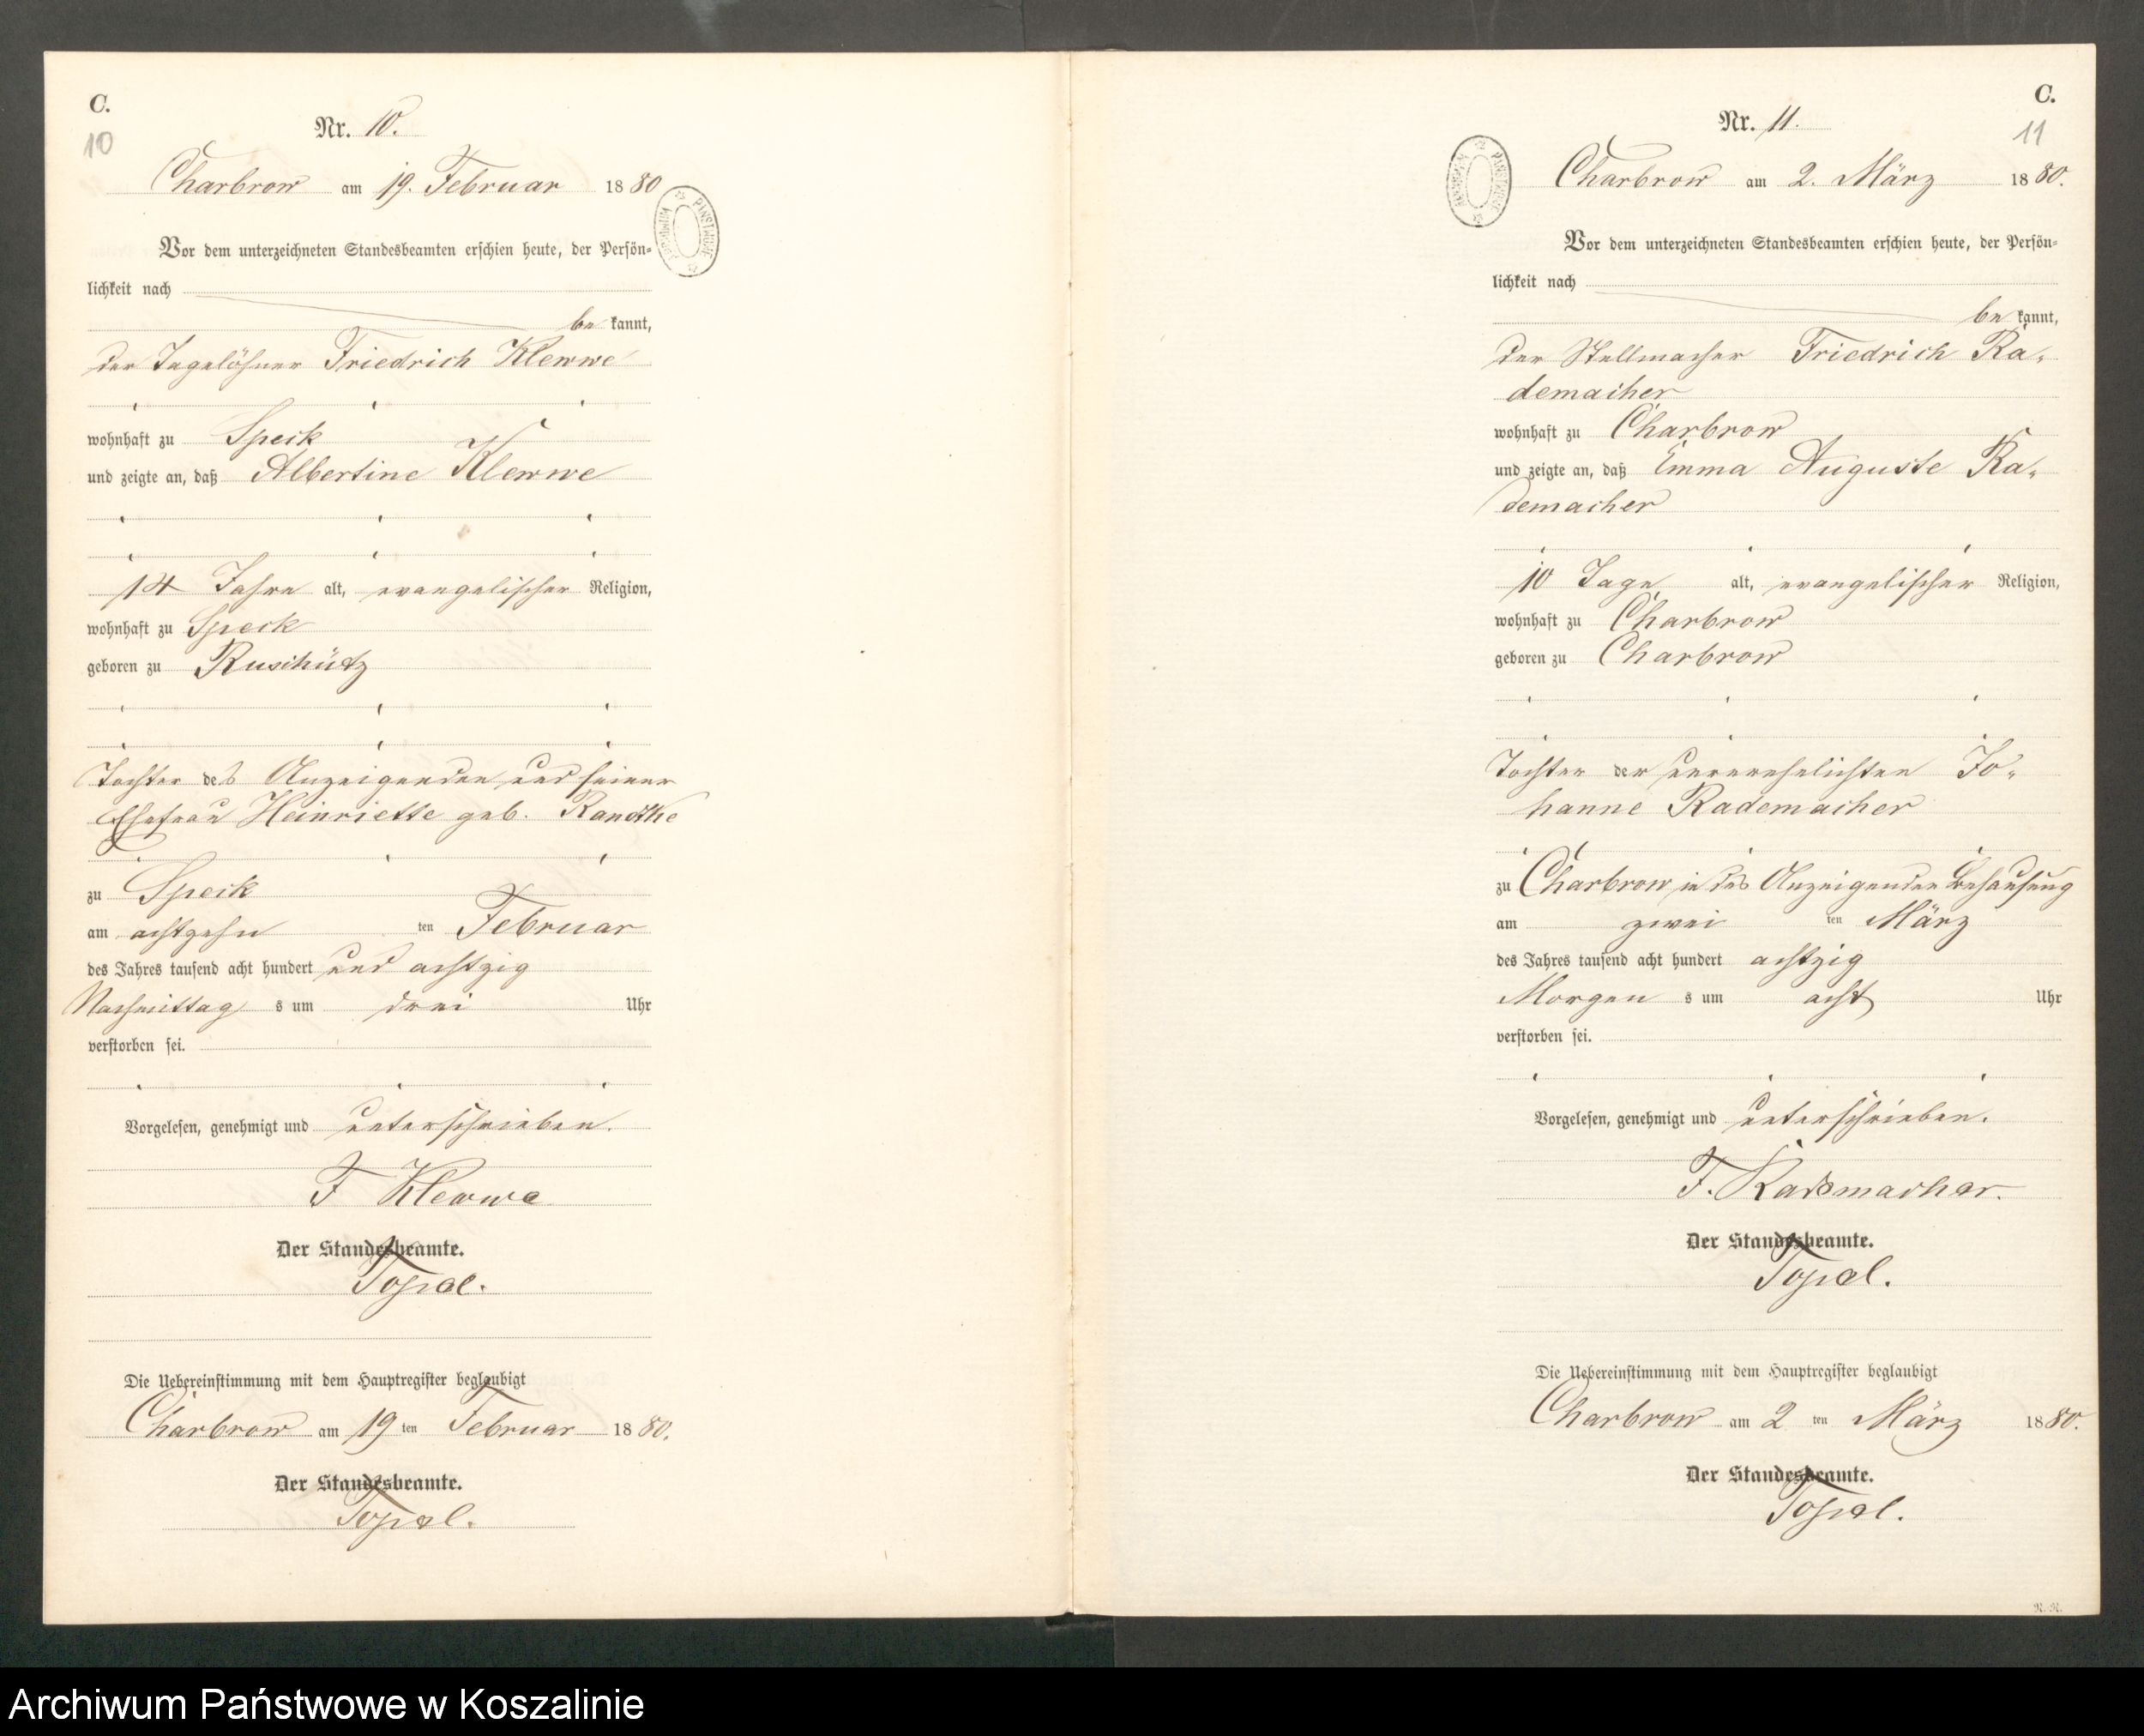 C.
10
Nr. 10.
Charbrow am 19. Februar 1880
ARCHIWUM PAŃSTWOWE
Vor dem unterzeichneten Standesbeamten erschien heute, der Persön=
lichkeit nach
be kannt,
der Tagelöhner Friedrich Klewwe
wohnhaft zu Speck
und zeigte an, daß Albertine Klewwe
14 Jahre alt, evangelischer Religion,
wohnhaft zu Speck
geboren zu Ruschütz
Tochter des Anzeigenden und seiner
Ehefrau Heinriette geb. Randtke
zu Speck
am achtzehn ten Februar
des Jahres tausend acht hundert und achtzig
Nachmittag s um drei Uhr
verstorben sei.
Vorgelesen, genehmigt und unterschrieben.
F Klewwe
Der Standesbeamte.
Topel.
Die Uebereinstimmung mit dem Hauptregister beglaubigt
Charbrow am 19 ten Februar 1880.
Der Standesbeamte.
Topel.
C.
11
Nr. 11.
ARCHIWUM PAŃSTWOWE
Charbrow am 2. März 1880.
Vor dem unterzeichneten Standesbeamten erschien heute, der Persön=
lichkeit nach
be kannt,
der Stellmacher Friedrich Ra-
demacher
wohnhaft zu Charbrow
und zeigte an, daß Emma Auguste Ra-
demacher
10 Tage alt, evangelischer Religion,
wohnhaft zu Charbrow
geboren zu Charbrow
Tochter der unverehelichten Jo-
hanne Rademacher
zu Charbrow in des Anzeigenden Behausung
am zwei ten März
des Jahres tausend acht hundert achtzig
Morgen s um acht Uhr
verstorben sei.
Vorgelesen, genehmigt und unterschrieben.
F. Rademacher.
Der Standesbeamte.
Topel.
Die Uebereinstimmung mit dem Hauptregister beglaubigt
Charbrow am 2 ten März 1880.
Der Standesbeamte.
Topel.
R. R.
Archiwum Państwowe w Koszalinie